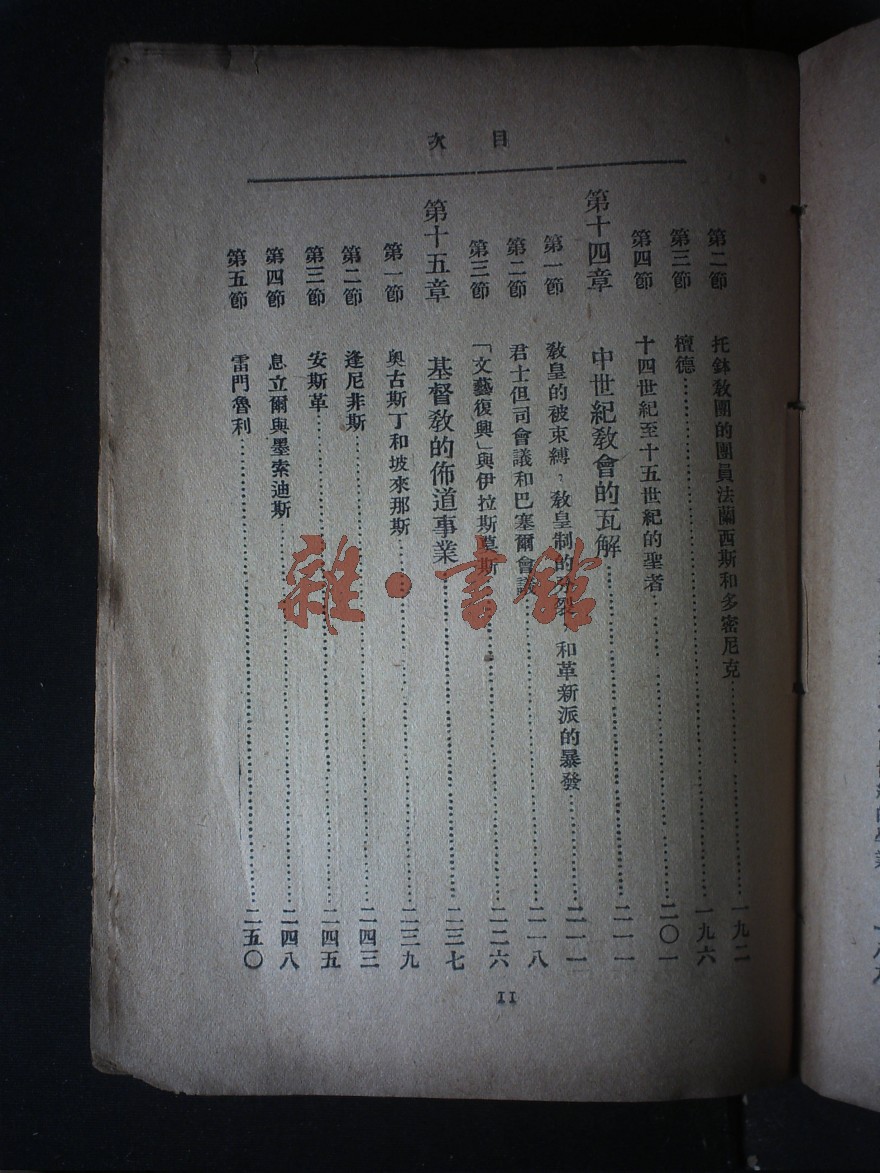 目次
第二節 托鉢教團的團員法蘭西斯和多密尼克 一九二
第三節 檀德 一九六
第四節 十四世紀至十五世紀的聖者 二〇一
第十四章 中世紀教會的瓦解 二一一
第一節 教皇的被束縛，教皇制的分裂，和革新派的暴發 二一一
第二節 君士但司會議和巴塞爾會議 二一八
第三節 「文藝復興」與伊拉斯莫斯 二二六
第十五章 基督教的佈道事業 二三七
第一節 奧古斯丁和坡來那斯 二三九
第二節 逢尼非斯 二四三
第三節 安斯革 二四五
第四節 息立爾與墨索迪斯 二四八
第五節 雷門魯利 二五〇
II
雜·書館